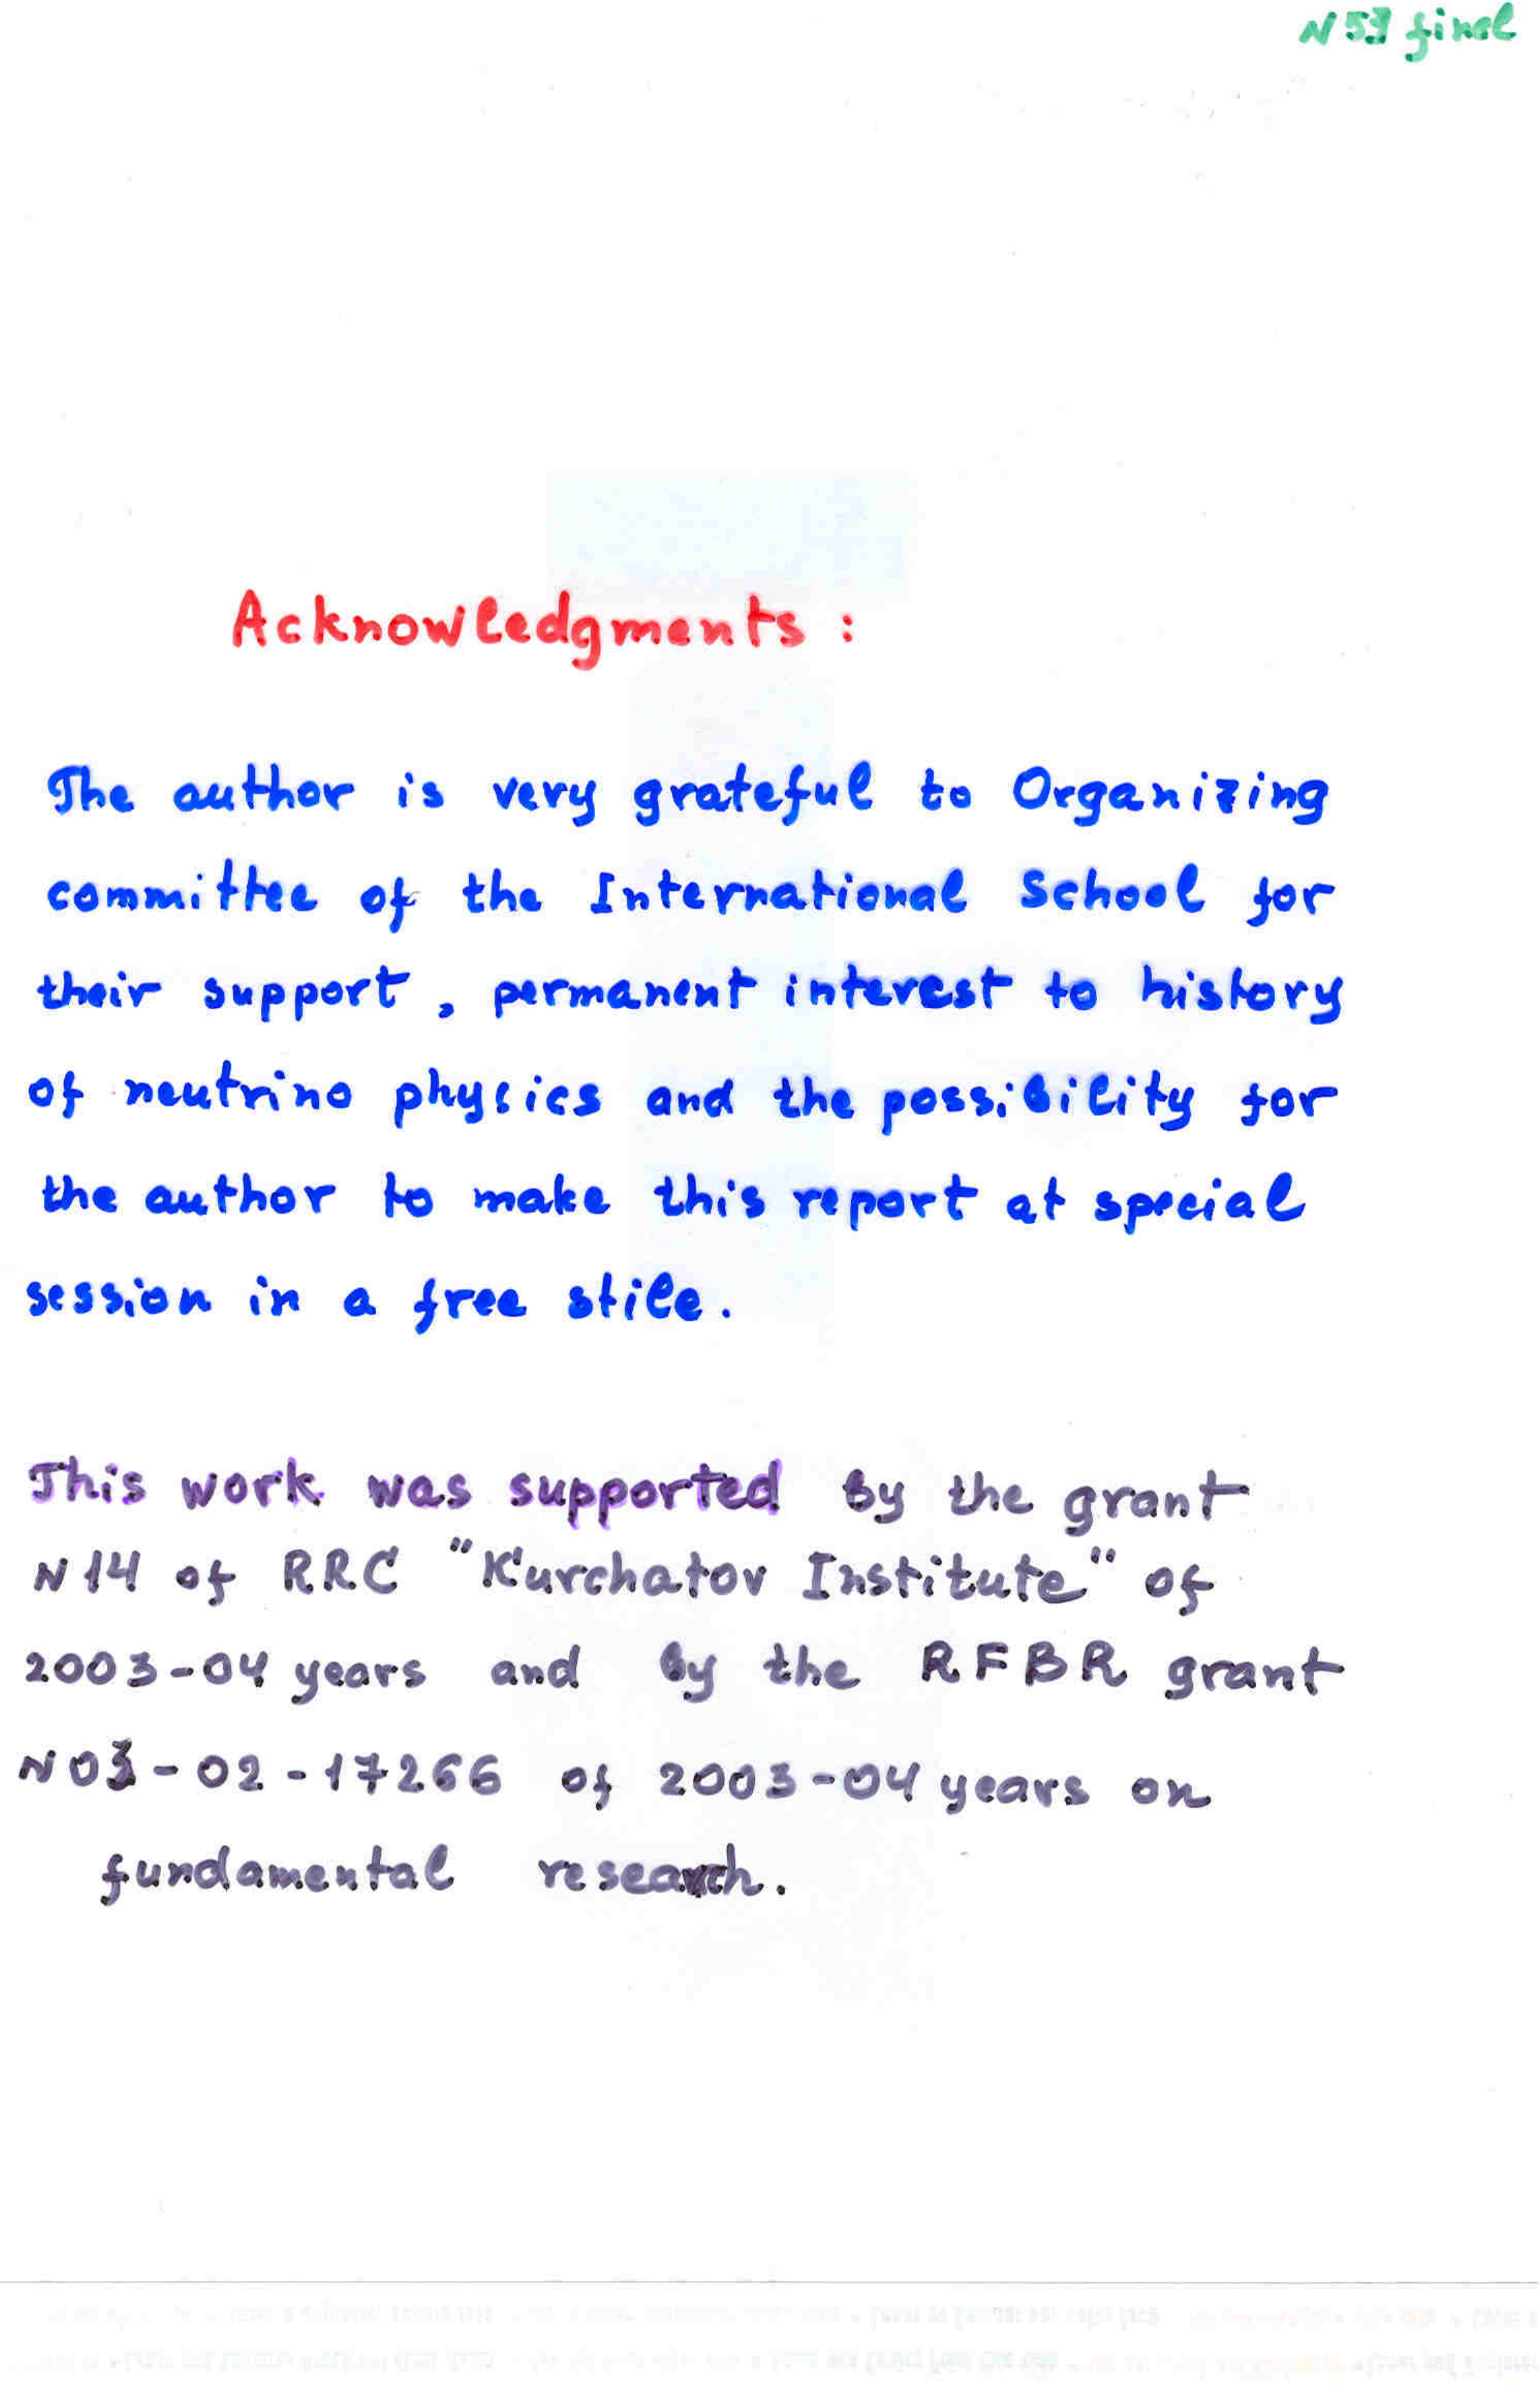 N 53 final
Acknowledgments :
The author is very grateful to Organizing
committee of the International School for
their support, permanent interest to history
of neutrino physics and the possibility for
the author to make this report at special
session in a free stile.
This work was supported by the grant
N 14 of RRC "Kurchatov Institute" of
2003-04 years and by the RFBR grant
N 03-02-17266 of 2003-04 years on
fundamental research.